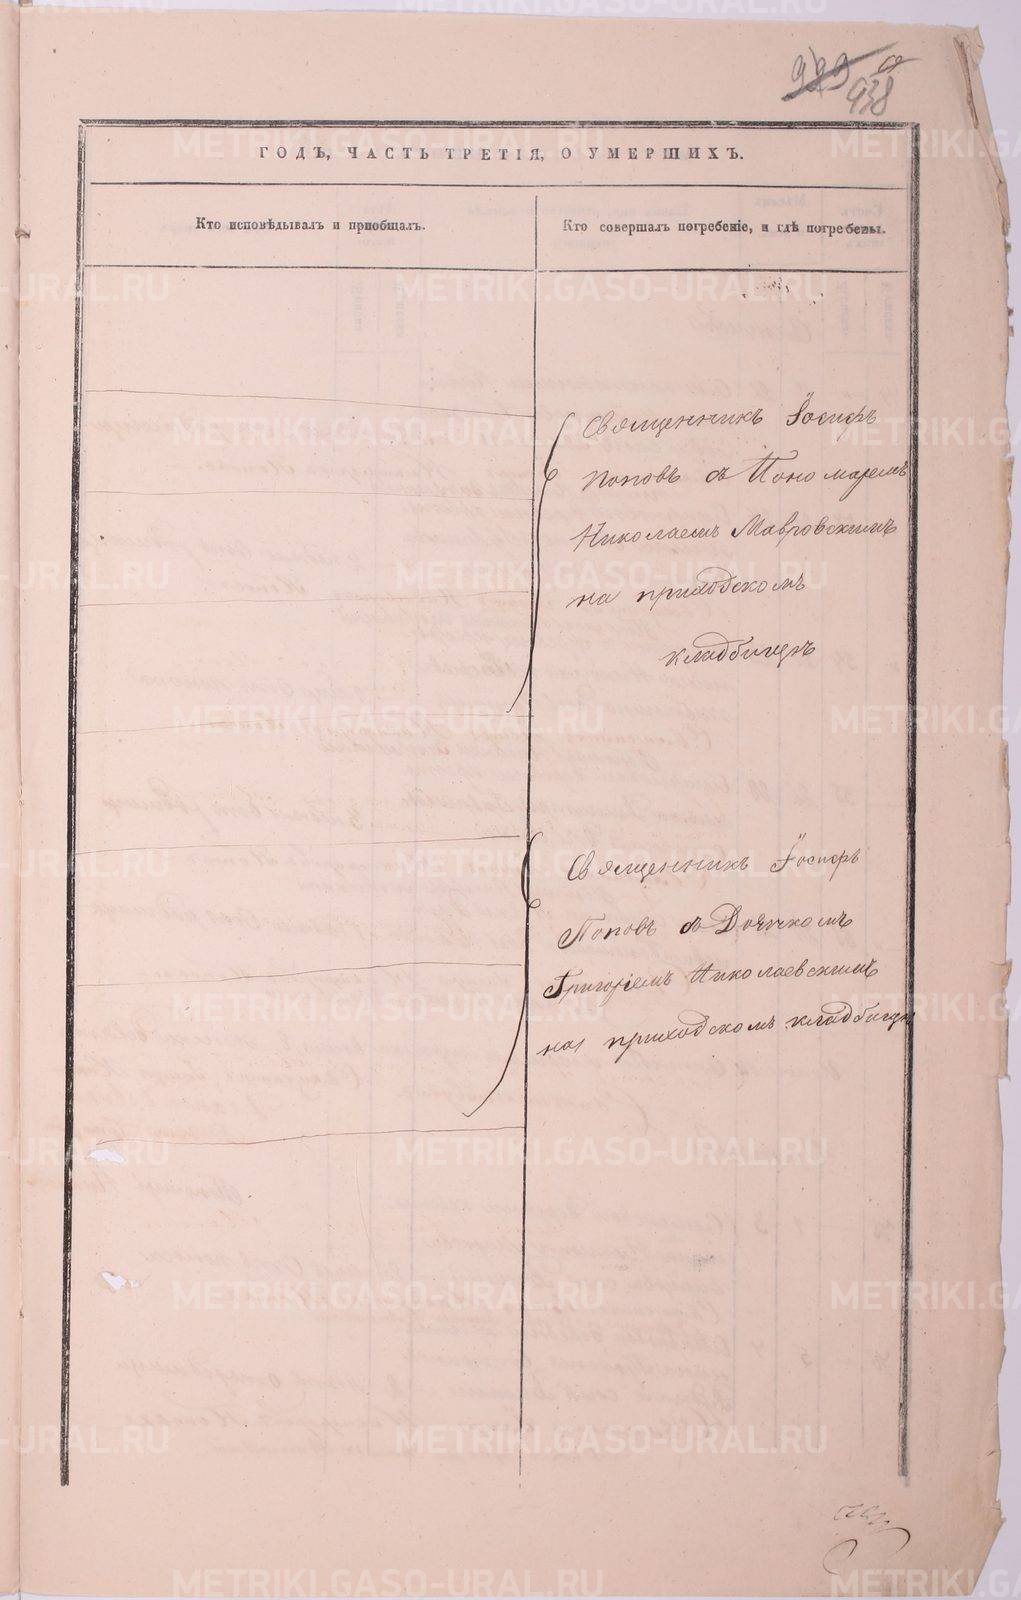 938
ГОДЪ, ЧАСТЬ ТРЕТІЯ, О УМЕРШИХЪ.
Кто исповѣдывалъ и пріобщалъ.
Кто совершалъ погребеніе, и гдѣ погребены.
Священникъ Іосифъ
Поповъ съ Пономаремъ
Николаемъ Мавровскимъ
на приходскомъ
кладбищѣ
Священникъ Іосифъ
Поповъ съ Дьячкомъ
Григоріемъ Николаевскимъ
на приходскомъ кладбищѣ
METRIKI.GASO-URAL.RU